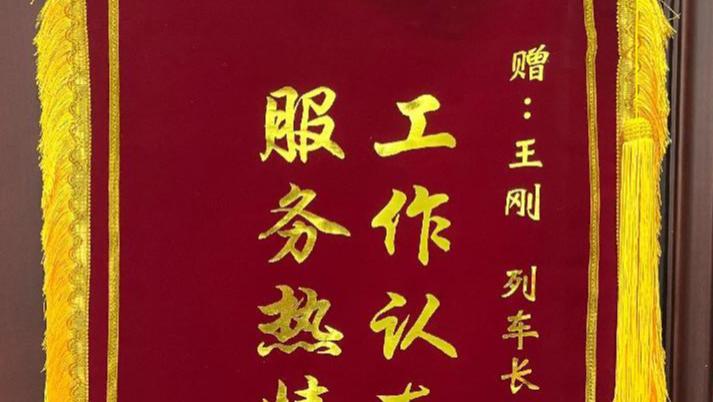 赠：王刚 列车长
工作认
服务热